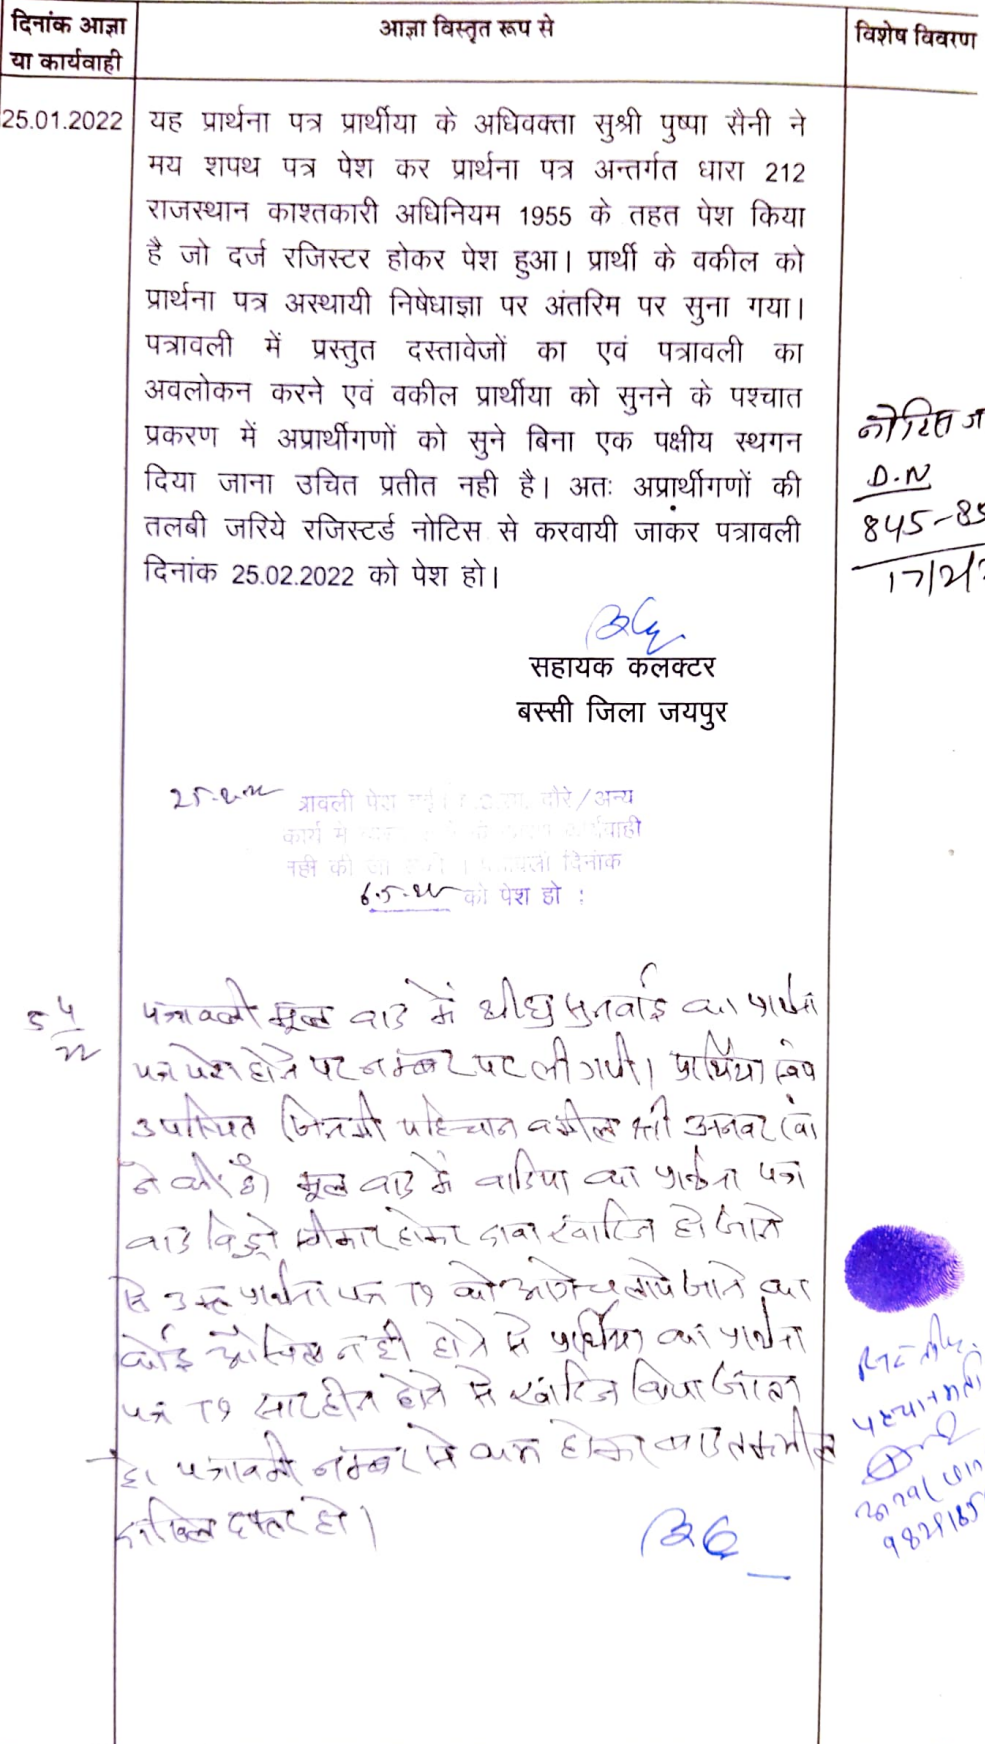 दिनांक आज्ञा या कार्यवाही
आज्ञा विस्तृत रूप से
विशेष विवरण
25.01.2022
यह प्रार्थना पत्र प्रार्थीया के अधिवक्ता सुश्री पुष्पा सैनी ने
मय शपथ पत्र पेश कर प्रार्थना पत्र अन्तर्गत धारा 212
राजस्थान काश्तकारी अधिनियम 1955 के तहत पेश किया
है जो दर्ज रजिस्टर होकर पेश हुआ। प्रार्थी के वकील को
प्रार्थना पत्र अस्थायी निषेधाज्ञा पर अंतरिम पर सुना गया।
पत्रावली में प्रस्तुत दस्तावेजों का एवं पत्रावली का
अवलोकन करने एवं वकील प्रार्थीया को सुनने के पश्चात
प्रकरण में अप्रार्थीगणों को सुने बिना एक पक्षीय स्थगन
दिया जाना उचित प्रतीत नही है। अतः अप्रार्थीगणों की
तलबी जरिये रजिस्टर्ड नोटिस से करवायी जाकर पत्रावली
दिनांक 25.02.2022 को पेश हो।
नोटिस
D.N
845-85
17/2/
सहायक कलक्टर
बस्सी जिला जयपुर
त्रावली पेश दौरे/अन्य
कार्य में कार्यवाही
नही की दिनांक
6.5.22 को पेश हो :
5 4
22
पत्रावली मूल वाद में शीघ्र सुनवाई का प्रार्थना
पत्र पेश होने पर नम्बर पर ली गयी। प्रार्थिया स्वयं
उपस्थित जिनकी पहिचान वकील श्री अनवर खां
ने की है। मूल वाद में वादिया का प्रार्थना पत्र
वाद विड्रो स्वीकार होकर दावा खारिज हो जाने
से उक्त प्रार्थना पत्र T9 को आगे चलाये जाने का
कोई औचित्य नही होने से प्रार्थिया का प्रार्थना
पत्र T9 सारहीन होने से खारिज किया जाता
है। पत्रावली नम्बर से कम होकर बाद तकमील
दाखिल दफ्तर हो।